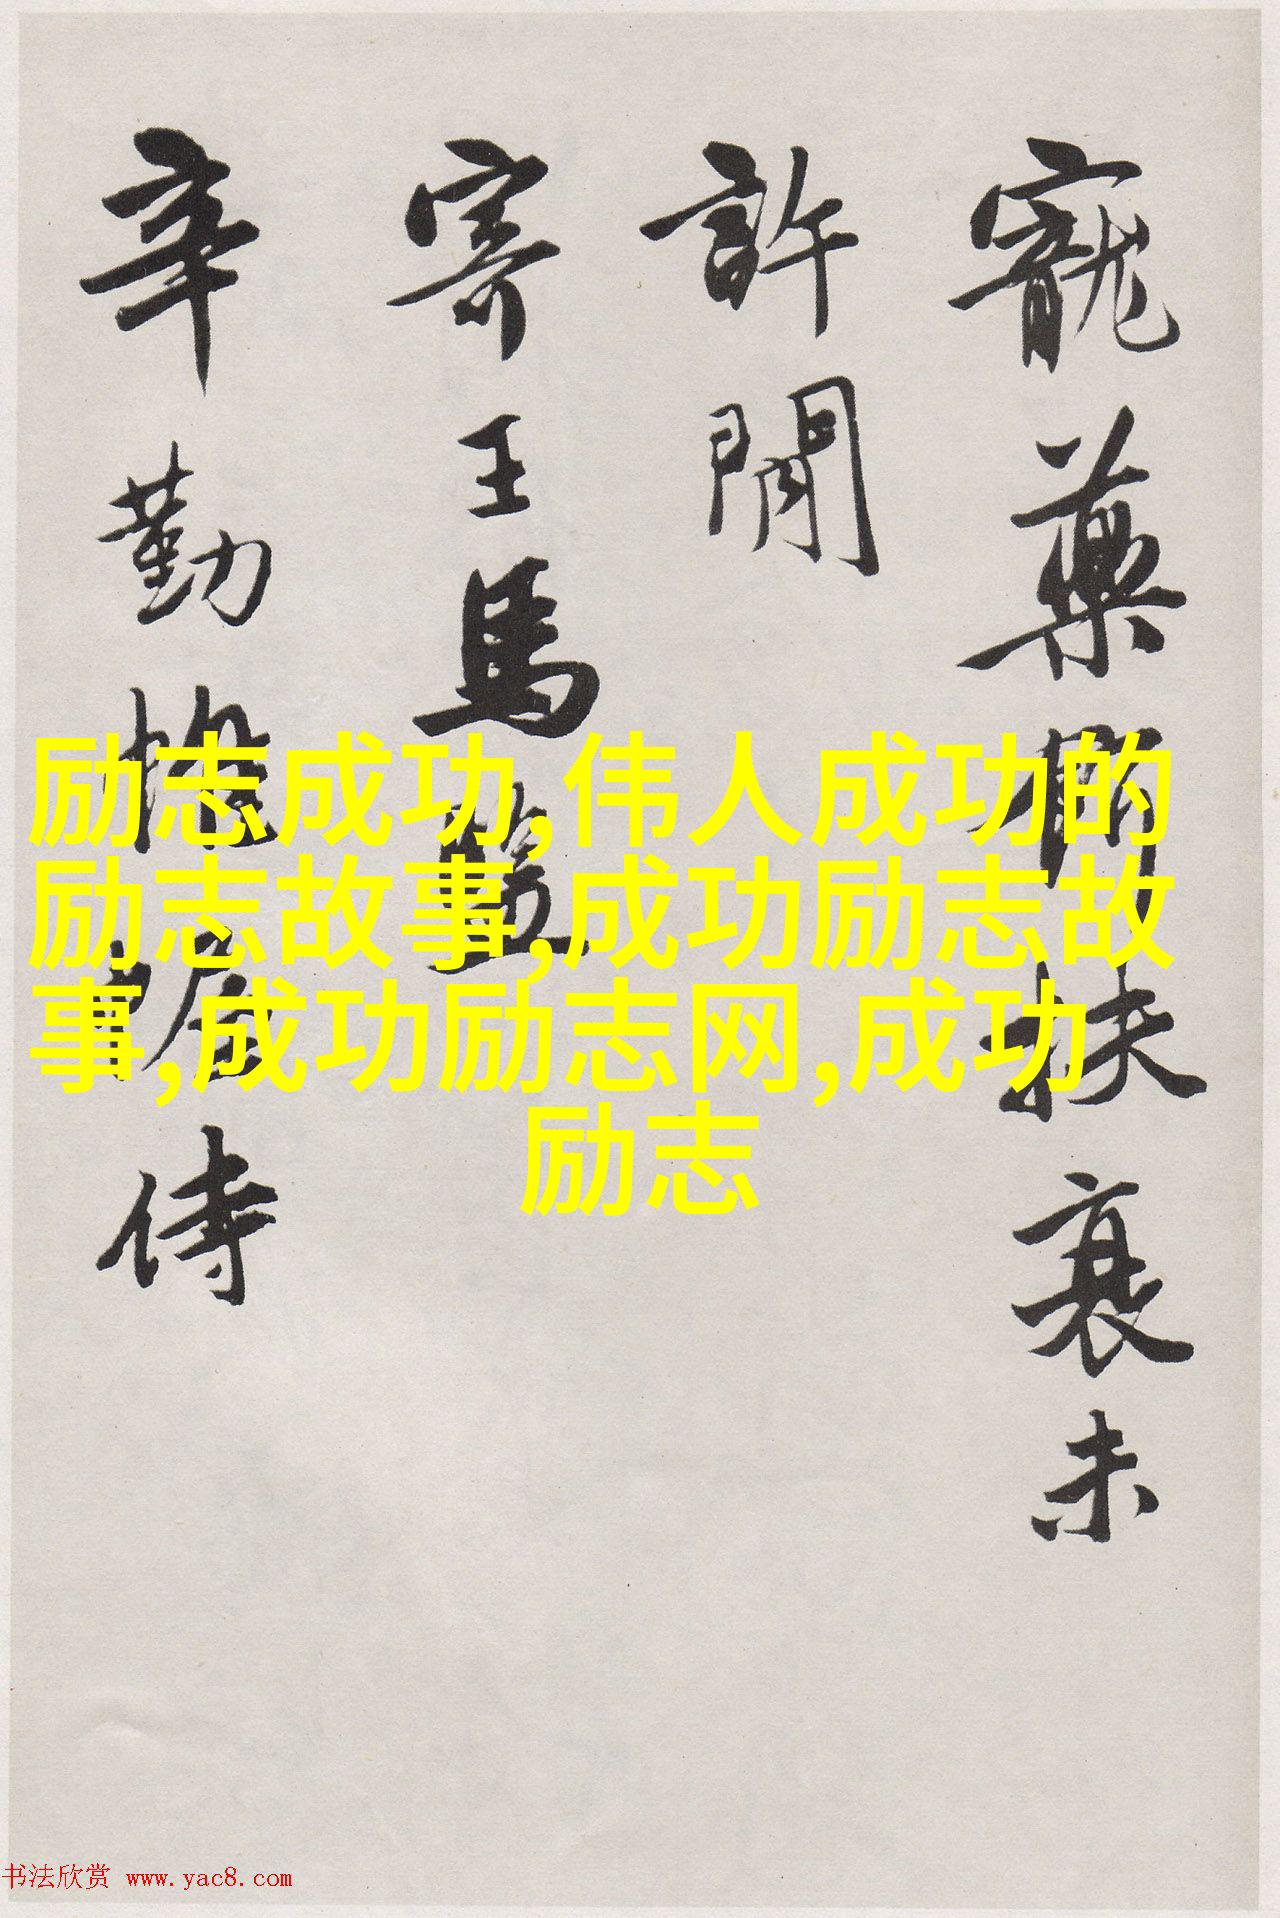 寵藥扶衰未
許閒
寄王馬監
辛勤帷幄侍
励志成功,伟人成功的
励志故事,成功励志故
事,成功励志网,成功
励志
书法欣赏 www.yac8.com